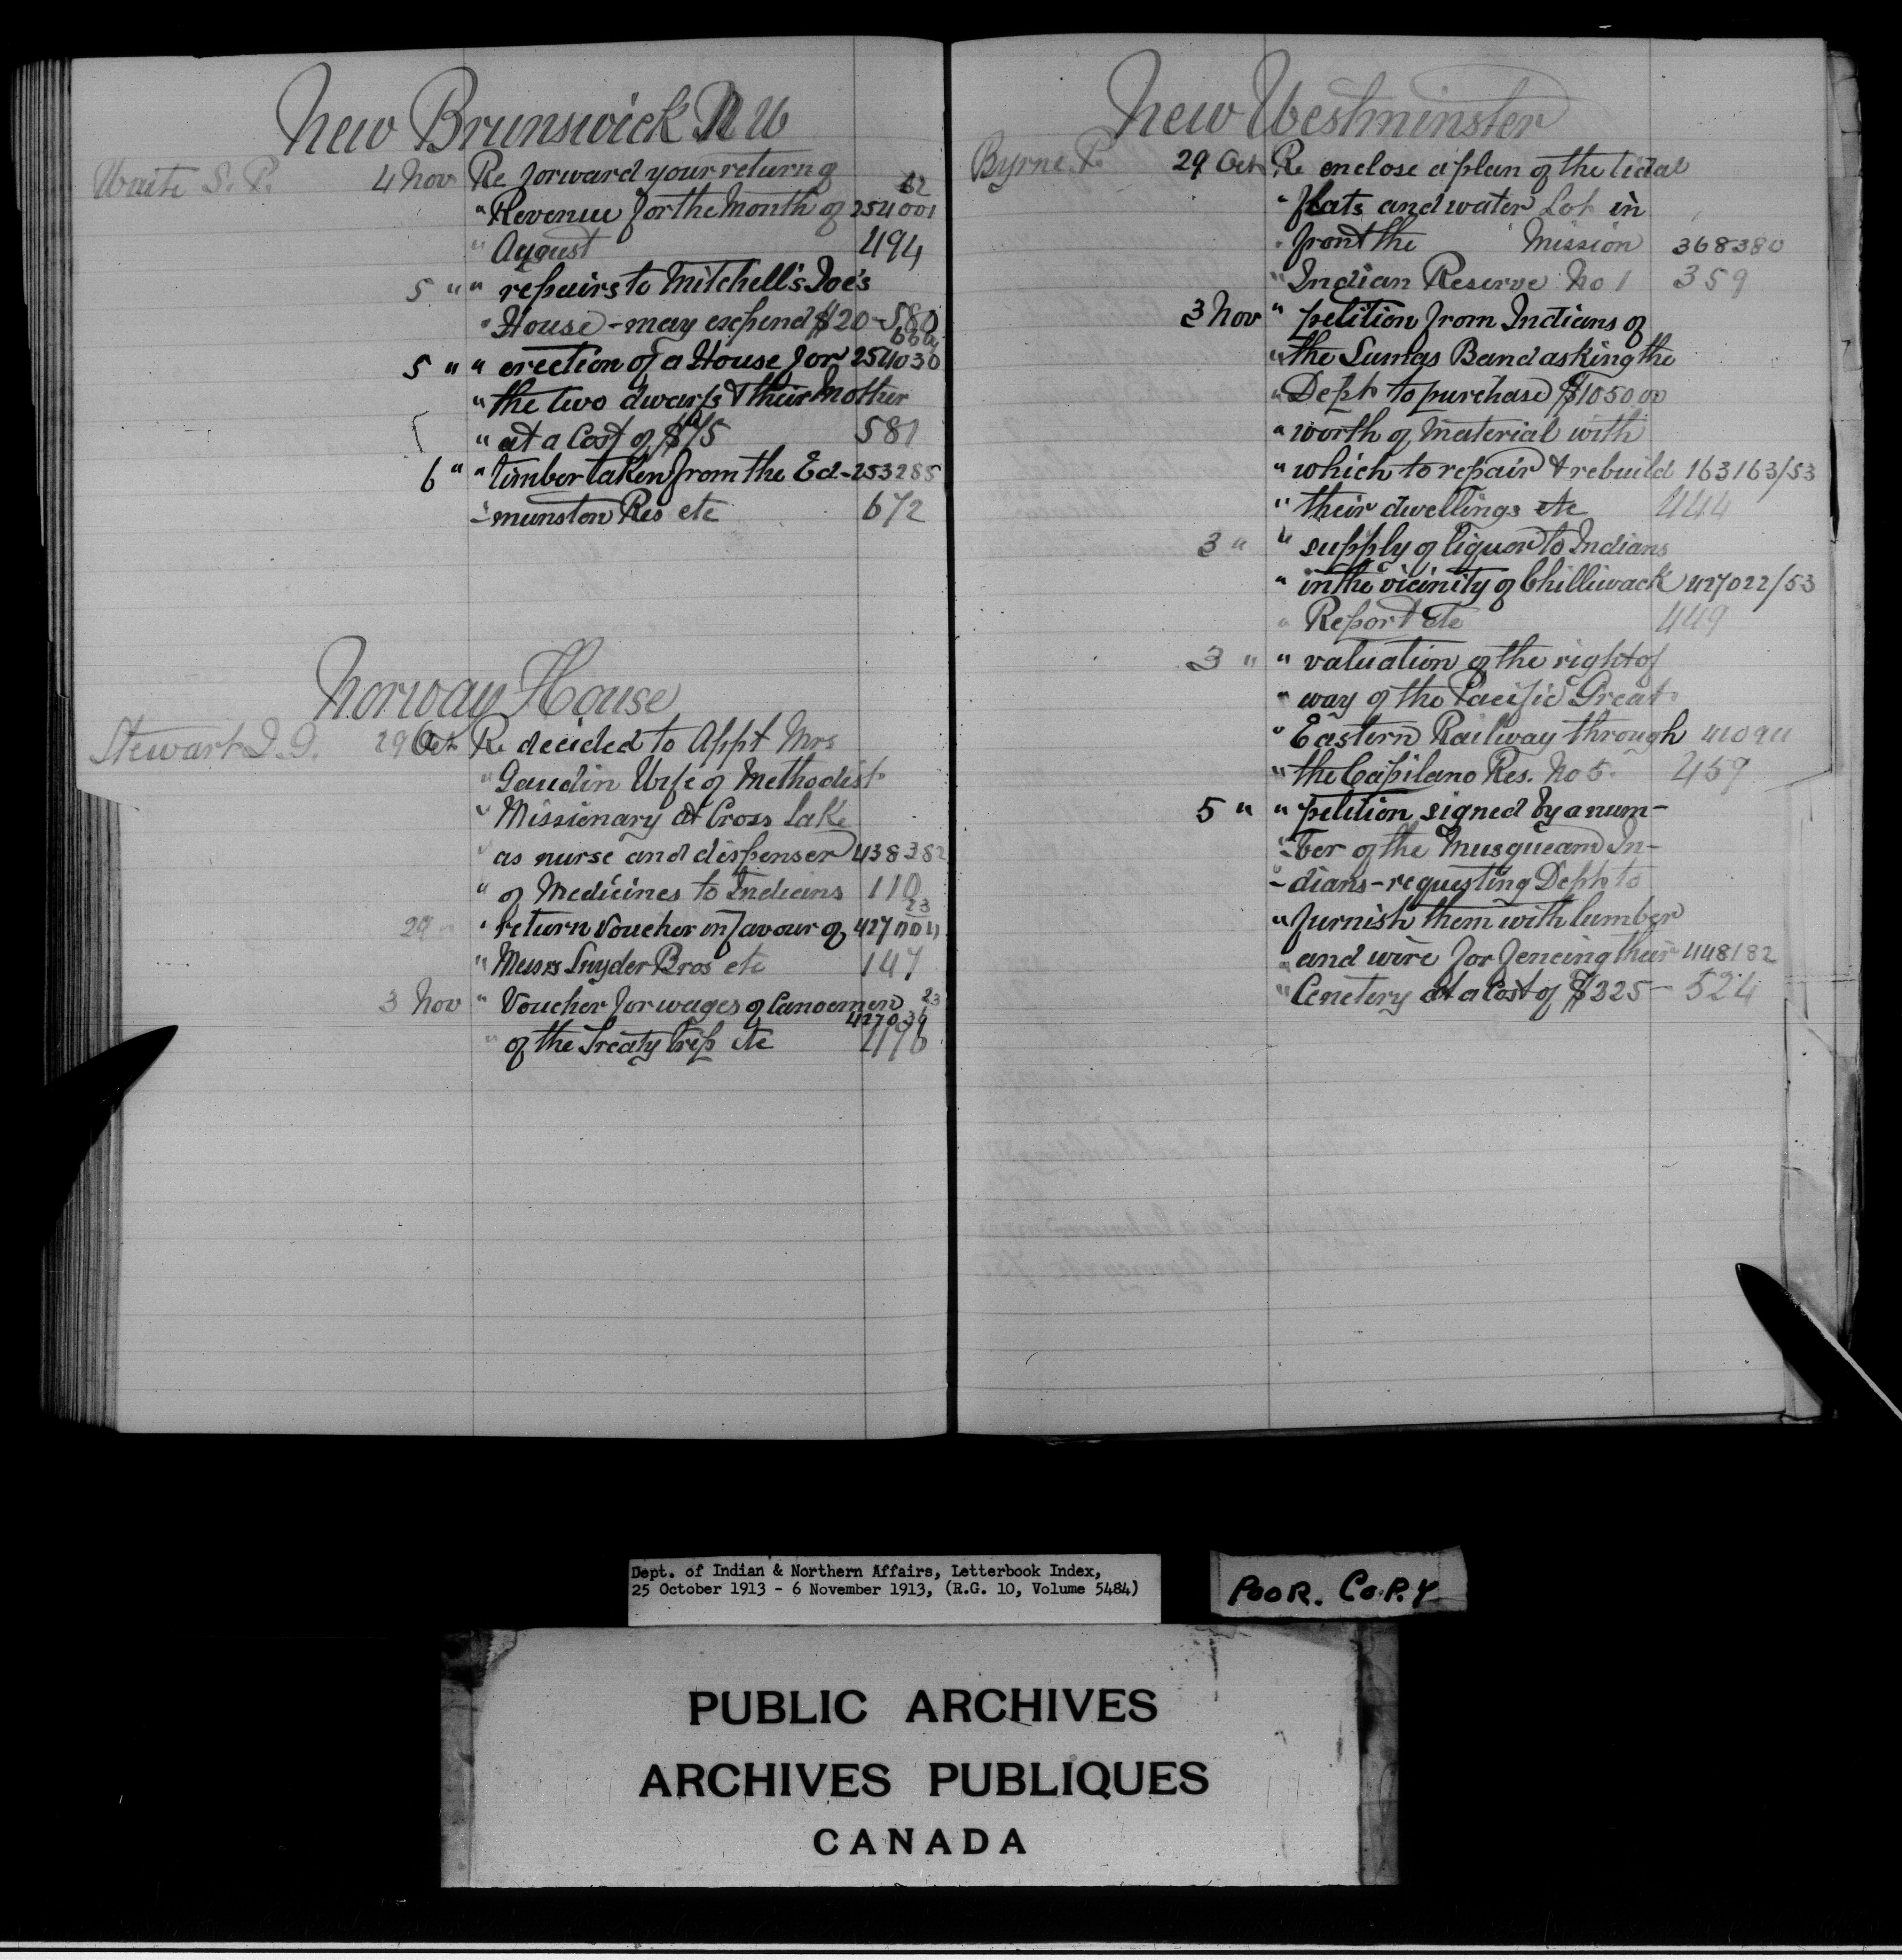 New Brunswick N W
Waite S. P. 4 Nov Re forward your return of 62
" Revenue for the Month of 254001
" August 494
5 " " repairs to Mitchell's Joe's
" House - may expend $20 - 580
5 " " erection of a House for 254030
" the two dwarfs & their Mother
" at a Cost of $75 581
6 " " timber taken from the Ed- 253285
- munston Res etc 672
Norway House
Stewart J. G. 29 Oct Re decided to Appt Mrs
" Gaudin Wife of Methodist
" Missionary at Cross Lake
" as nurse and dispenser 438382
" of Medicines to Indians 110
23
29 " " return Voucher in favour of 427004
" Messrs Snyder Bros etc 147
3 Nov " Voucher for wages of Canoemen 23
427036
" of the Treaty trip etc
New Westminster
Byrne P. 29 Oct Re enclose a plan of the tidal
" flats and water Lot in
" front the Mission 368380
" Indian Reserve No 1 359
3 Nov " petition from Indians of
" the Sumas Band asking the
" Dept to purchase $1050 00
" worth of Material with
" which to repair & rebuild 163163/53
" their dwellings etc 444
3 " " supply of liquor to Indians
" in the vicinity of Chilliwack 427022/53
" Report etc 449
3 " " valuation of the right of
" way of the Pacific Great
" Eastern Railway through
" the Capilano Res. No 5. 459
5 " " petition signed by a num-
- ber of the Musqueam In-
- dians - requesting Dept to
" furnish them with lumber
" and wire for fencing their 448182
" Cemetery at a Cost of $325 - 524
Dept. of Indian & Northern Affairs, Letterbook Index,
25 October 1913 - 6 November 1913, (R.G. 10, Volume 5484)
POOR. COPY
PUBLIC ARCHIVES
ARCHIVES PUBLIQUES
CANADA